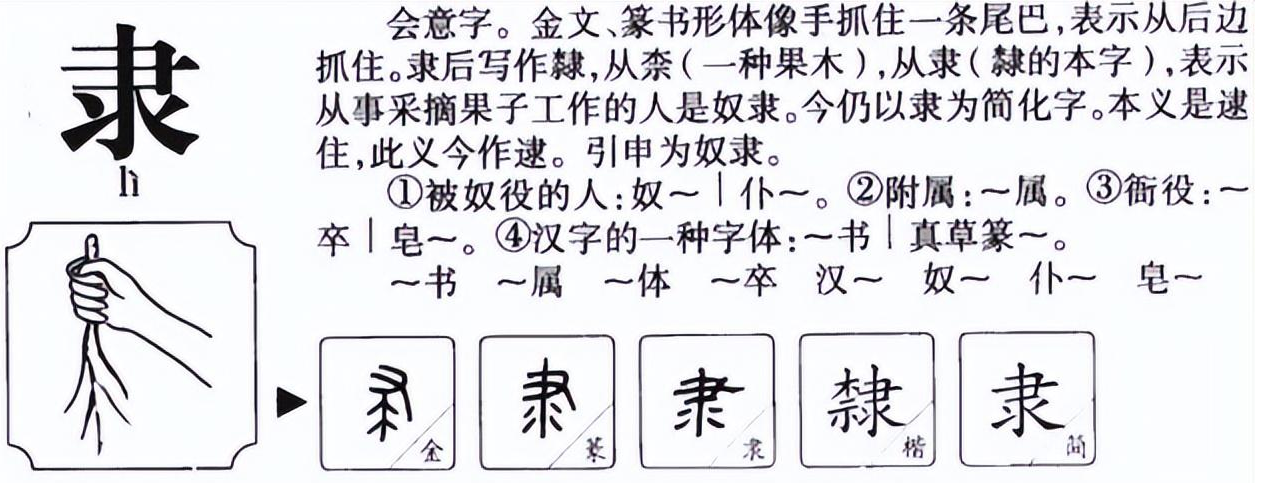 隶
lì
会意字。金文、篆书形体像手抓住一条尾巴,表示从后边
抓住。隶后写作隸,从柰(一种果木),从隶(隸的本字),表示
从事采摘果子工作的人是奴隶。今仍以隶为简化字。本义是逮
住,此义今作逮。引申为奴隶。
①被奴役的人:奴～|仆～。②附属:～属。③衙役:～
卒|皂～。④汉字的一种字体:～书|真草篆～。
～书 ～属 ～体 ～卒 汉～ 奴～ 仆～ 皂～
隶 金
隶 篆
隶 隶
隸 楷
隶 简